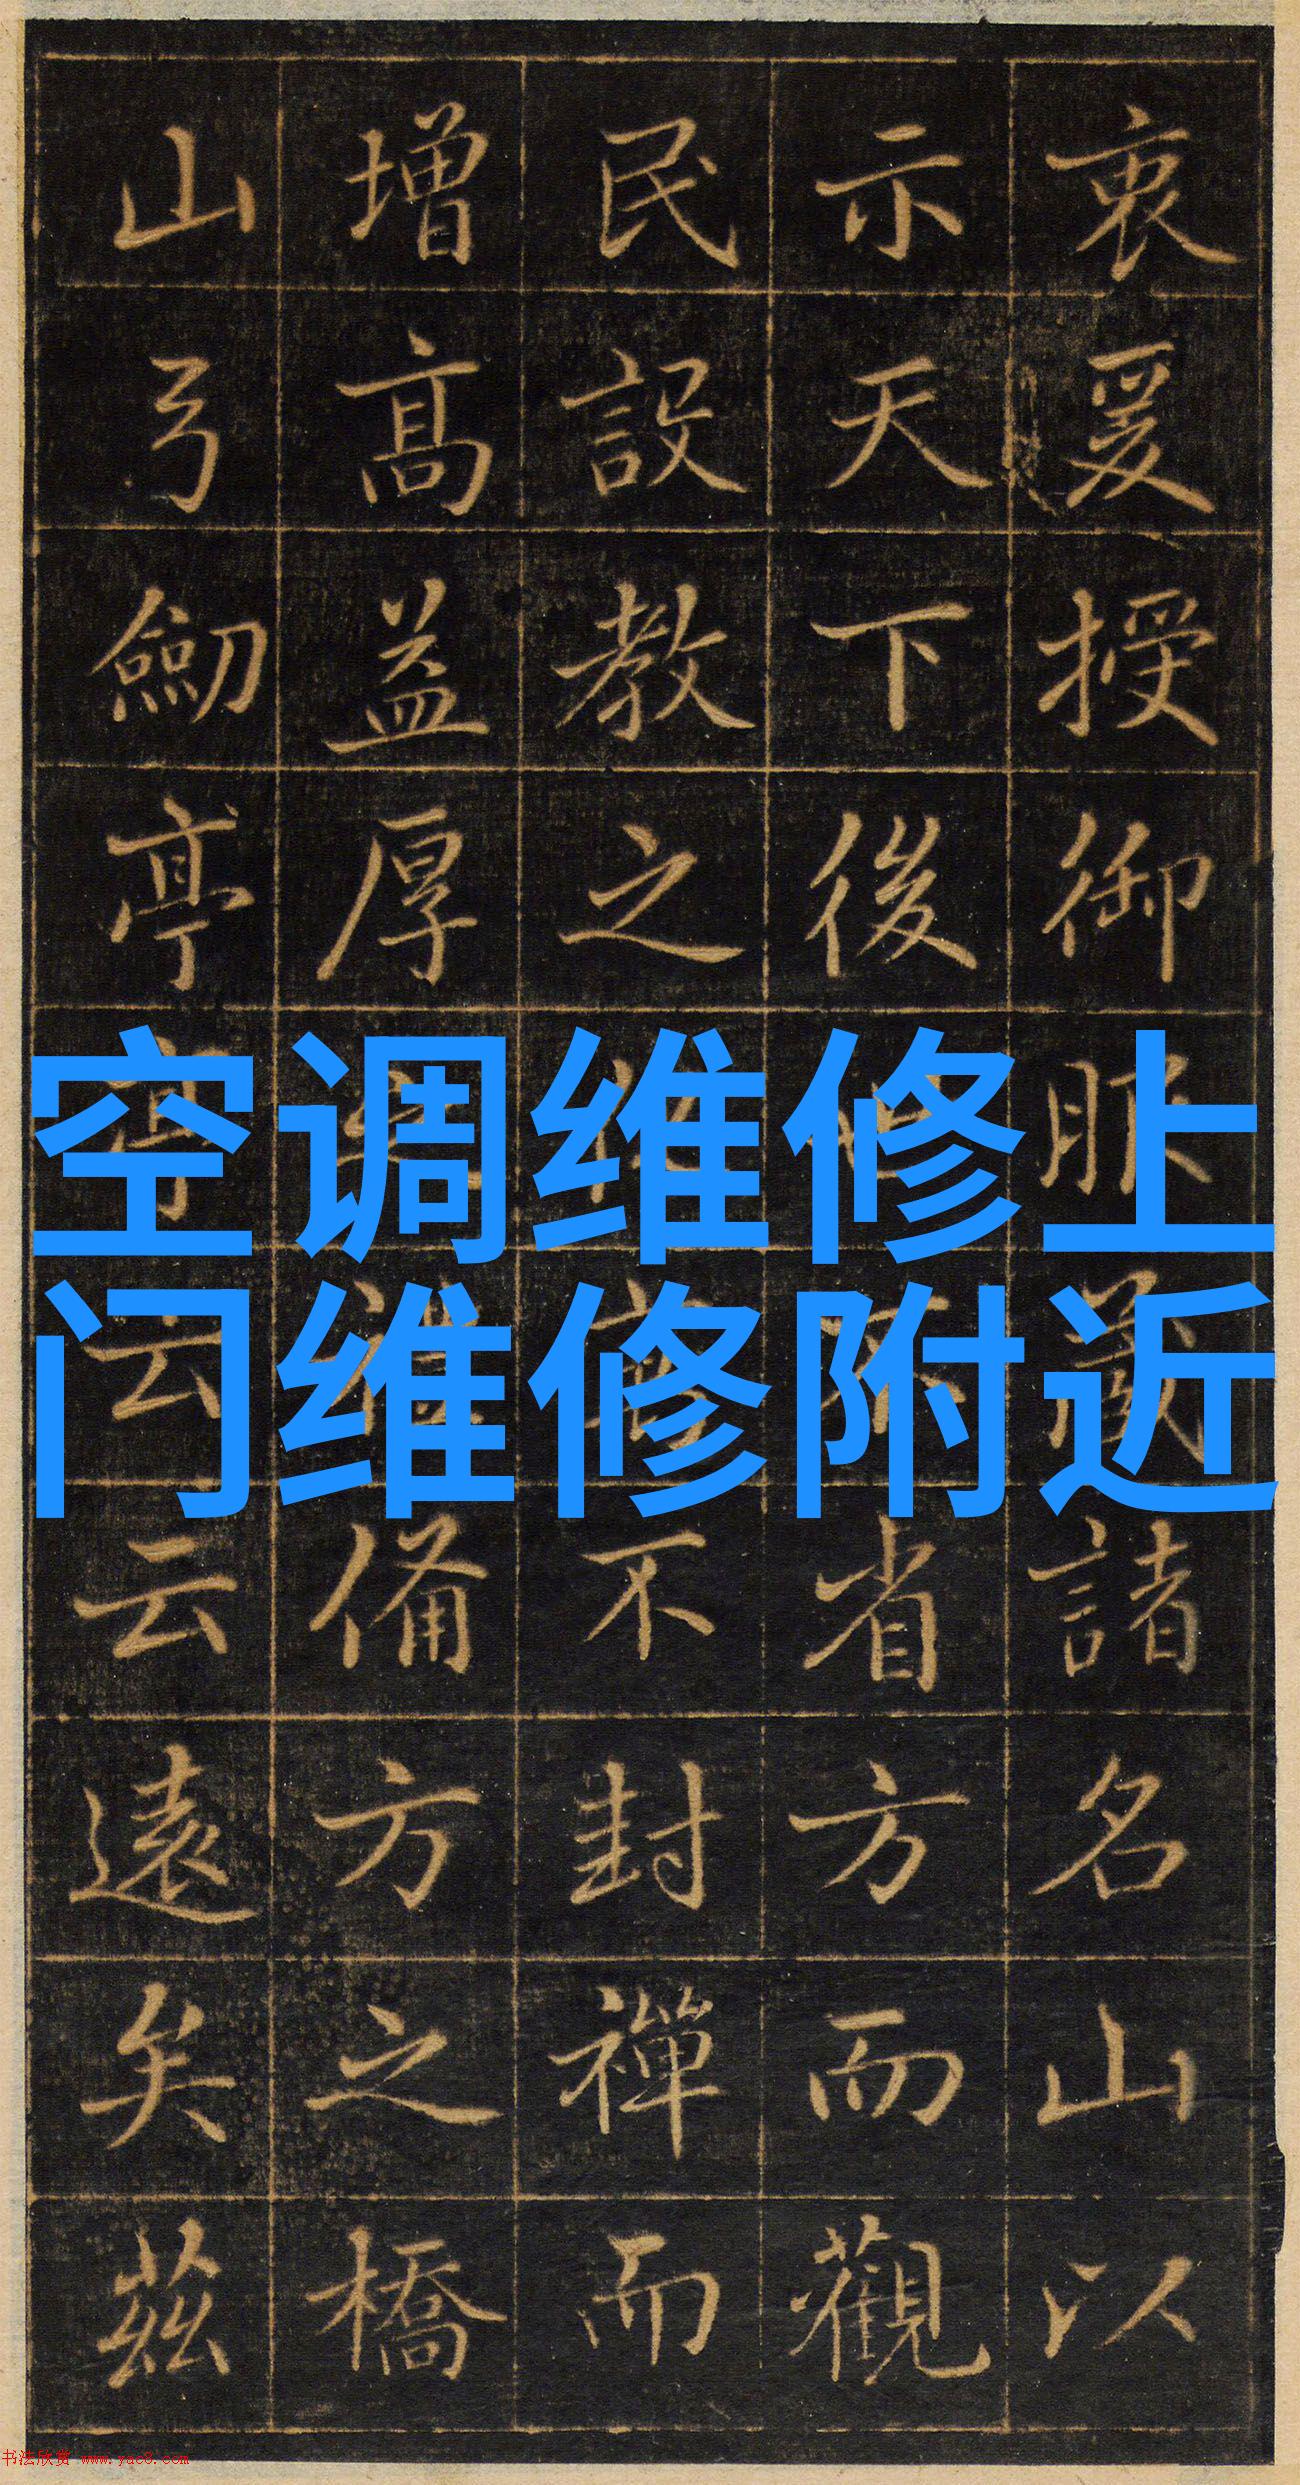 衷爰授御服藏諸名山以
示天下後省方而觀
民設教之不封禪而
增高益厚備方之橋
山弓劒亭云云遠矣茲
空调维修上
门维修附近
书法欣赏 www.yac8.com